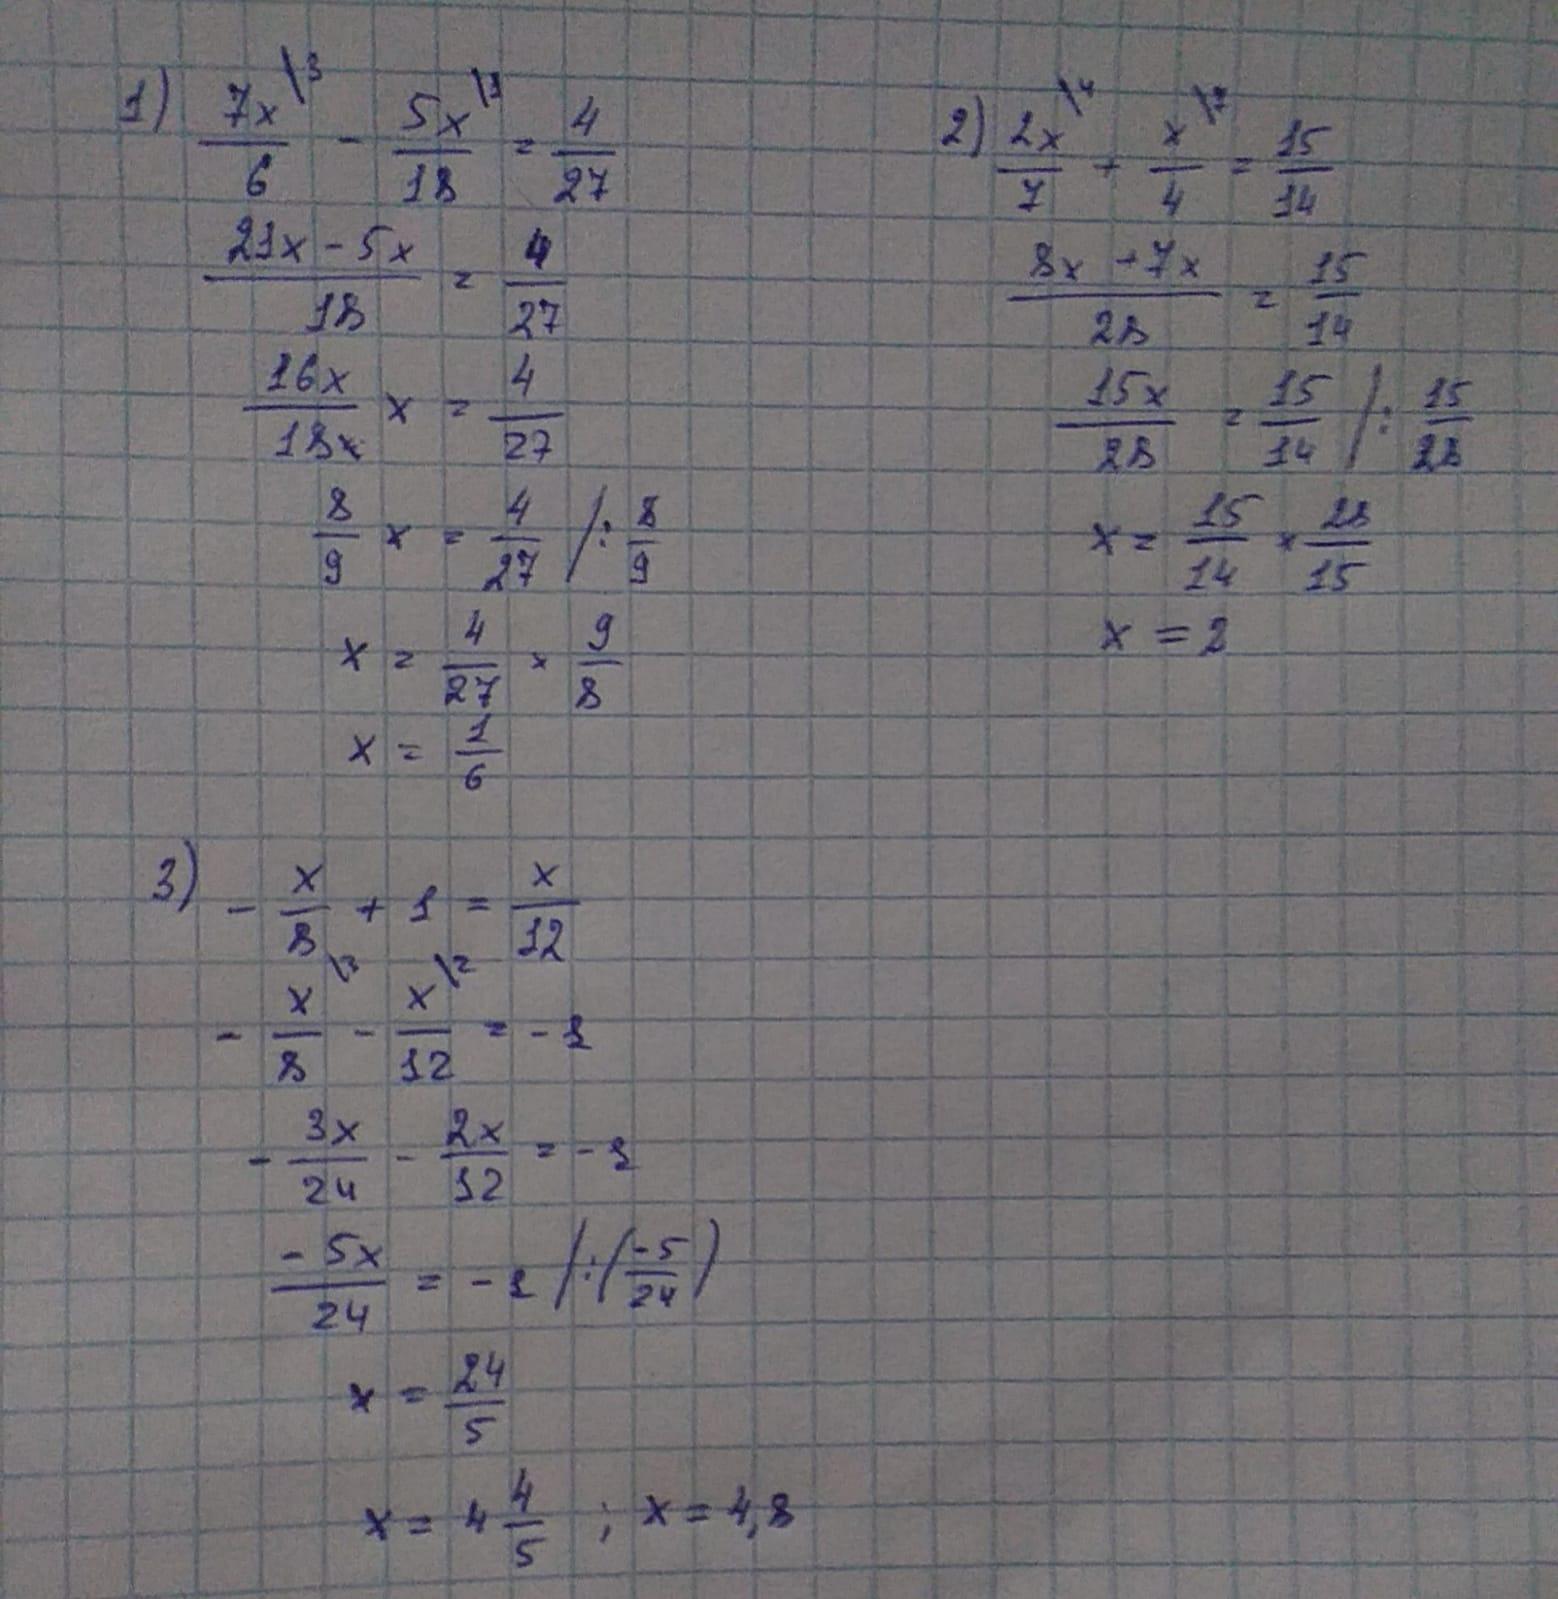 1) 7x\3/6 - 5x\1/18 = 4/27
21x - 5x/18 = 4/27
16x/18x x = 4/27
8/9 x = 4/27 /: 8/9
x = 4/27 × 9/8
x = 1/6
2) 2x\4/7 + x\7/4 = 15/14
8x + 7x/28 = 15/14
15x/28 = 15/14 /: 15/28
x = 15/14 × 28/15
x = 2
3) - x/8 + 1 = x/12
- x\3/8 - x\2/12 = -1
- 3x/24 - 2x/12 = -1
-5x/24 = -1 /:(-5/24)
x = 24/5
x = 4 4/5 ; x = 4,8